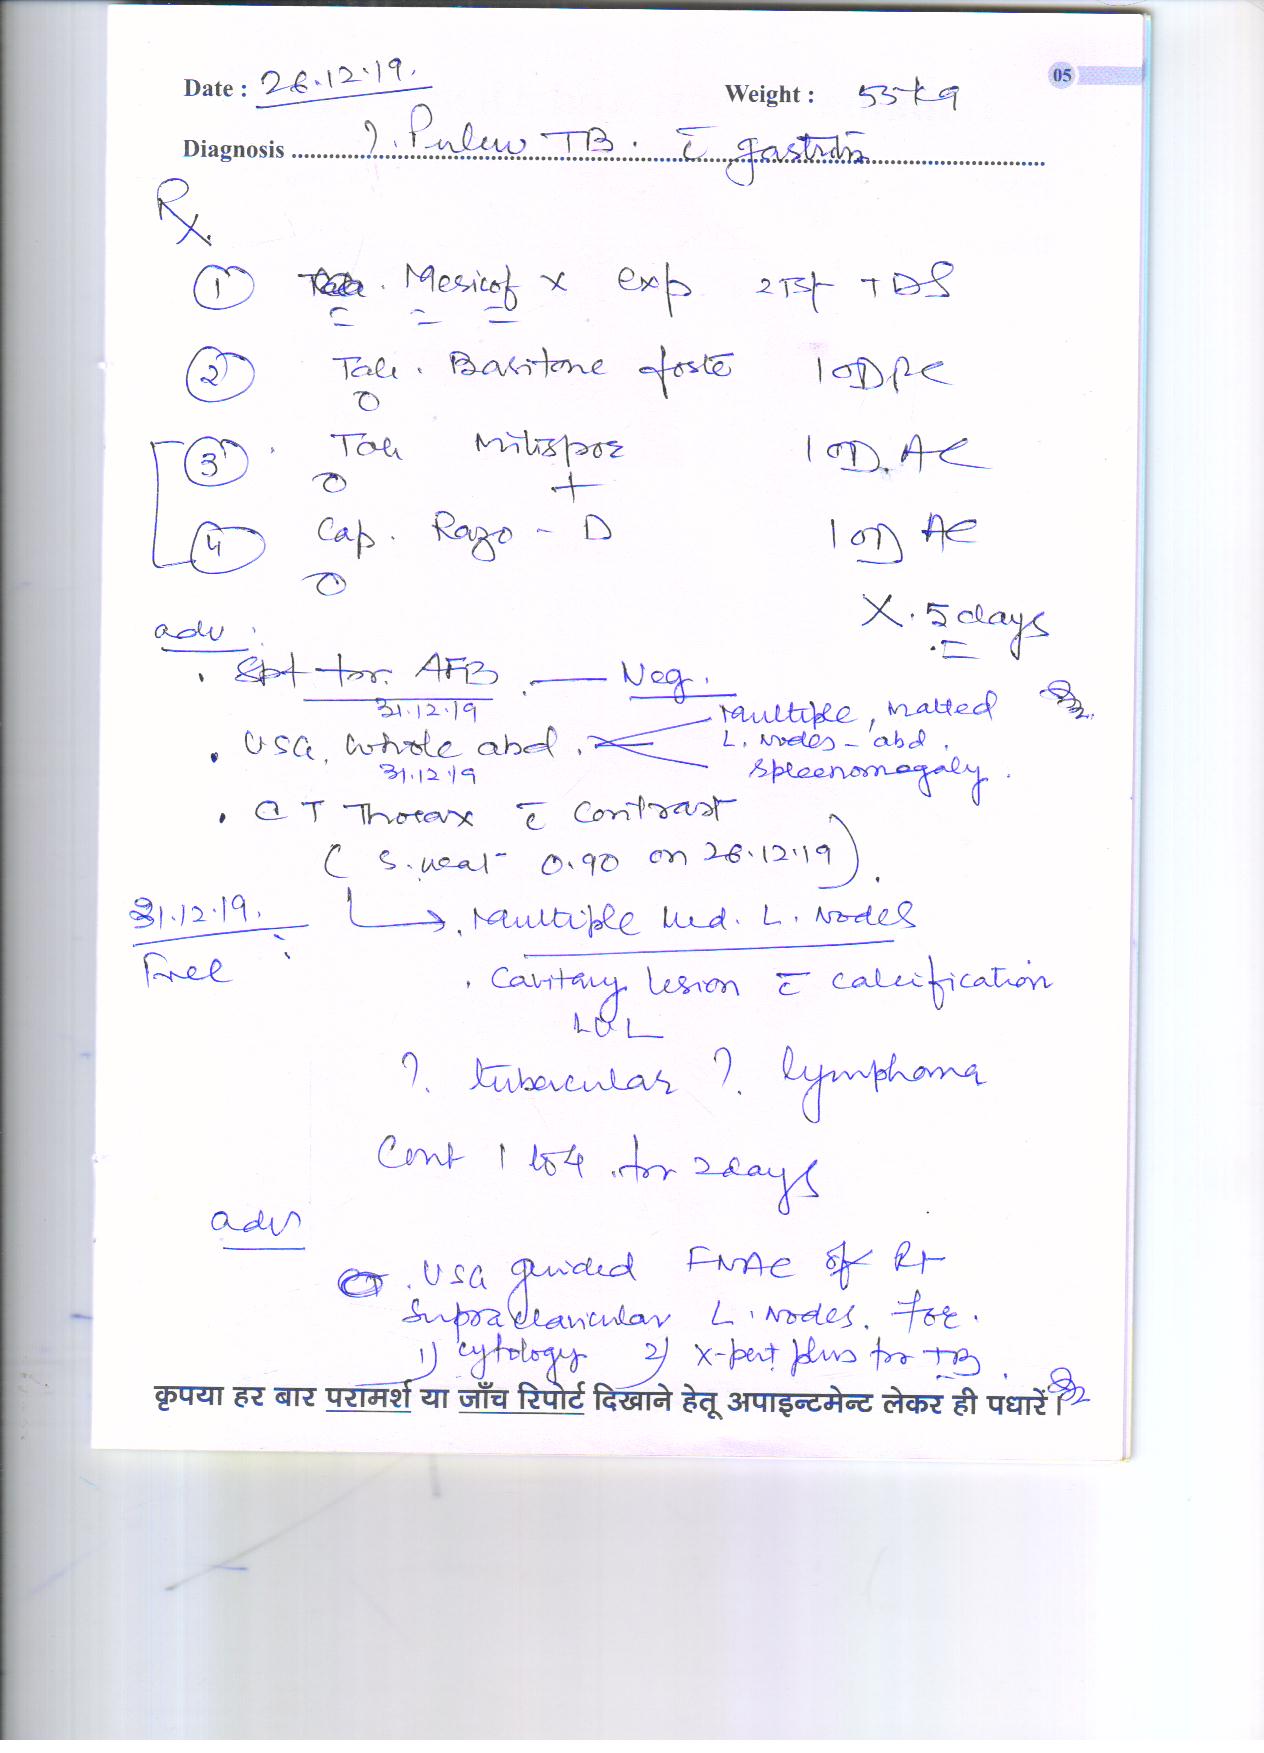 05
Date : 26.12.19. Weight : 53 kg
Diagnosis ? . Pulm TB . c̄ gastritis
Rx.
1 . Mesicof x exp 2 TSF TDS
2 Tab . Basitone forte 1 OD PC
3 Tab 1 OD. AC
+
4 Cap . Razo - D 1 OD AC
X . 5 days
adv :
. Spt for AFB . — Neg .
31.12.19
. USG, whole abd . Multiple, Matted
L. Nodes - abd .
31.12.19 Spleenomegaly .
. CT Thorax c̄ contrast
( S. 0.90 on 26.12.19 ) .
31.12.19. . Multiple Med. L. Nodes
Free
. Cavitary lesion c̄ calcification
? . tubercular ? . lymphoma
Cont 1 to 4 . for 2 days
adv
. USG guided FNAC of Rt
Supraclavicular L. Nodes. For .
1) cytology 2) x-pert plus for TB .
कृपया हर बार परामर्श या जाँच रिपोर्ट दिखाने हेतू अपाइन्टमेन्ट लेकर ही पधारें ।